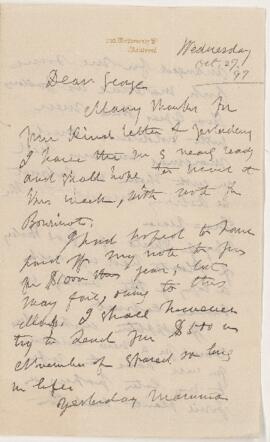 Montreal
Wednesday
Oct. 27,
97
Dear George
Many thanks for
your kind letter of yesterday
I have the M S nearly ready
and shall hope to send it
this week, with note for
Bourinot.
I had hoped to have
paid off my note to you
for $1000 this year; but
may fail, owing to this
I shall however
try to send you $500 in
November if spared so long
in life.
Yesterday Mamma